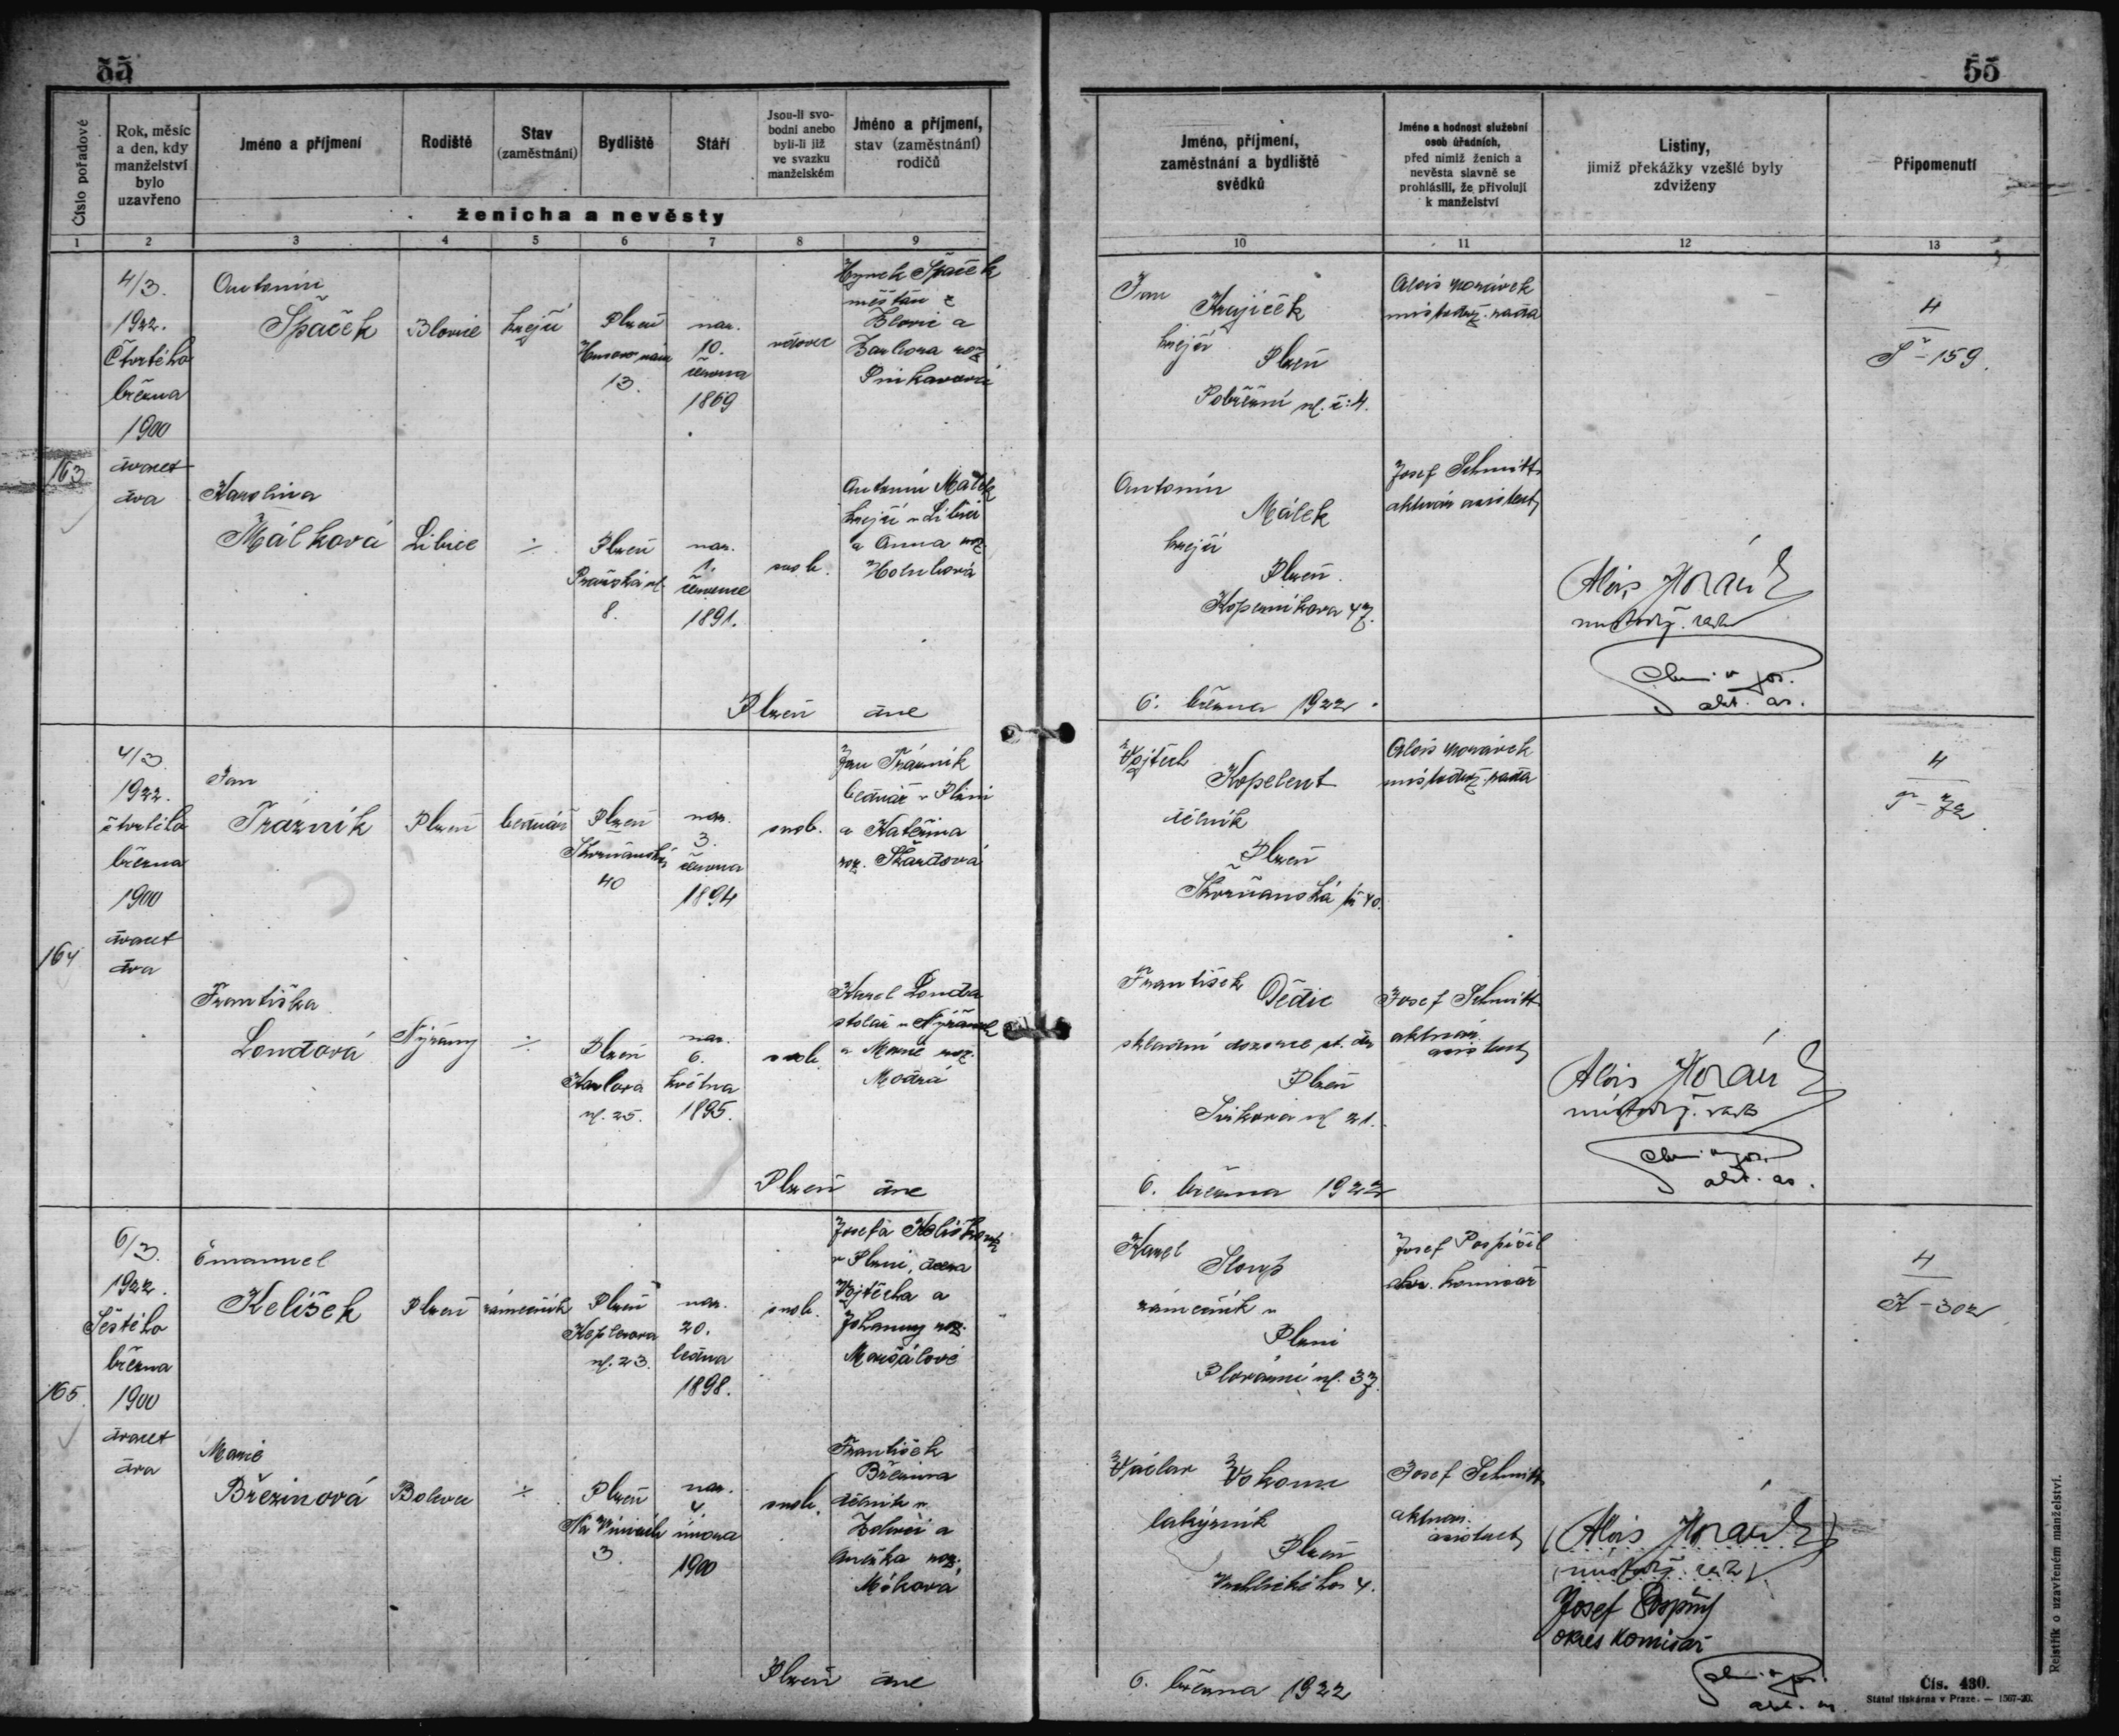 55
55
Číslo pořadové
Rok, měsíc
a den, kdy
manželství
bylo
uzavřeno
Jméno a příjmení
Rodiště
Stav
(zaměstnání)
Bydliště
Stáří
Jsou-li svo-
bodni anebo
byli-li již
ve svazku
manželském
Jméno a příjmení,
stav (zaměstnání)
rodičů
ženicha a nevěsty
1
2
3
4
5
6
7
8
9
Jméno, příjmení,
zaměstnání a bydliště
svědků
Jméno a hodnost služební
osob úředních,
před nimiž ženich a
nevěsta slavně se
prohlásili, že přivolují
k manželství
Listiny,
jimiž překážky vzešlé byly
zdviženy
Připomenutí
10
11
12
13
163
4/3.
1922.
Čtvrtého
března
1900
dvacet
dva
Antonín
Špaček
Blovice
krejčí
Plzeň
Husovo nám
13.
nar.
10.
června
1869
vdovec
Hynek Špaček
měšťan z
Blovic a
Barbora roz
Karolina
Málková
Libice
÷
Plzeň
Pražská ul.
8.
nar.
1.
července
1891.
svob.
Antonín Málek
krejčí v Libici
a Anna roz.
Holubová
Plzeň dne
Jan
Krejíček
krejčí
Plzeň
Pobřežní ul. č: 4.
Alois Horávek
místodrž. rada
4
Š - 159.
Antonín
Málek
krejčí
Plzeň.
Koperníkova 47.
Josef Schmitt
aktuár. asistent
Alois Horávek
místodrž. rada
akt. as.
6. března 1922.
164
4/3
1922.
čtvrtého
března
1900
dvacet
dva
Jan
Trávník
Plzeň
bednář
Plzeň
Skvrňanská
40
nar.
3.
června
1894
svob.
Jan Trávník
bednář v Plzni
a Kateřina
roz. Škardová
Františka
Londová
Nýřany
÷
Plzeň
Karlova
ul. 25.
nar.
6.
května
1895.
svob.
Karel Londa
stolař v Nýřanech
a Marie roz.
Modrá
Plzeň dne
Vojtěch
Kopelent
dělník
Plzeň
Skvrňanská tř 40.
Alois Horávek
místodrž. rada
4
T - 72
František
Dědic
skladní dozorce st. dr.
Plzeň
ul 21.
Josef Schmitt
aktuár.
asistent
Alois Horávek
místodrž. rada
akt. as.
6. března 1922
165
6/3.
1922.
Šestého
března
1900
dvacet
dva
Emanuel
Kelíšek
Plzeň
zámečník
Plzeň
Koplerova
ul. 23.
nar.
20.
ledna
1898.
svob.
Josefa Kelíšková
v Plzni, dcera
Vojtěcha a
Johanny roz.
Maršálové
Marie
Březinová
Bolevec
÷
Plzeň
Na Vinicích
3.
nar.
4.
února
1900
svob.
František
Březina
dělník v
Bolevci a
Anežka roz.
Plzeň dne
Karel
Sloup
zámečník v
Plzni
Plovární ul. 37.
Josef Pospíšil
okr. komisař
4
K - 302
Václav Vokoun
lakýrník
Plzeň
Vrchlického 4.
Josef Schmitt
aktuár.
asistent
(Alois Horávek)
(místodrž. rada)
Josef Pospíšil
okres komisař
akt. as.
6. března 1922
Rejstřík o uzavřeném manželství.
Čís. 430.
Státní tiskárna v Praze. — 1567-20.